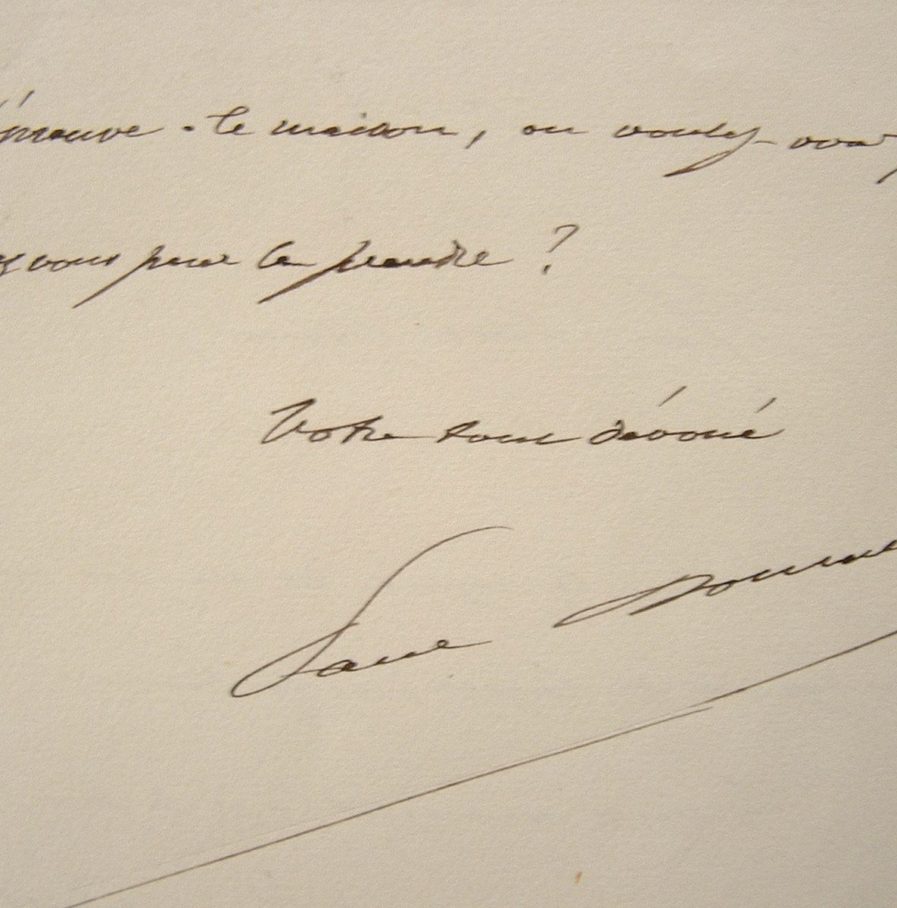 épreuve - le maison, ou voulez-vous
vous pour la prendre ?
Votre tout dévoué
Paul